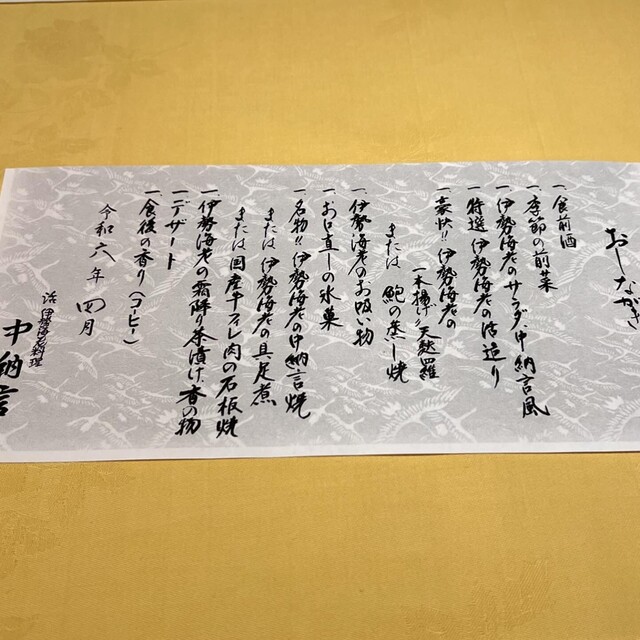 おしながき
一、食前酒
一、季節の前菜
一、伊勢海老のサラダ 中納言風
一、特選 伊勢海老の活造り
一、豪快!! 伊勢海老の
一本揚げ 天麩羅
または 鮑の蒸し焼
一、伊勢海老のお吸い物
一、お口直しの氷菓
一、名物!! 伊勢海老の中納言焼
または 伊勢海老の具足煮
または 国産牛フィレ肉の石板焼
一、伊勢海老の霜降茶漬け、香の物
一、デザート
一、食後の香り(コーヒー)
令和六年 四月
活 伊勢海老料理
中納言